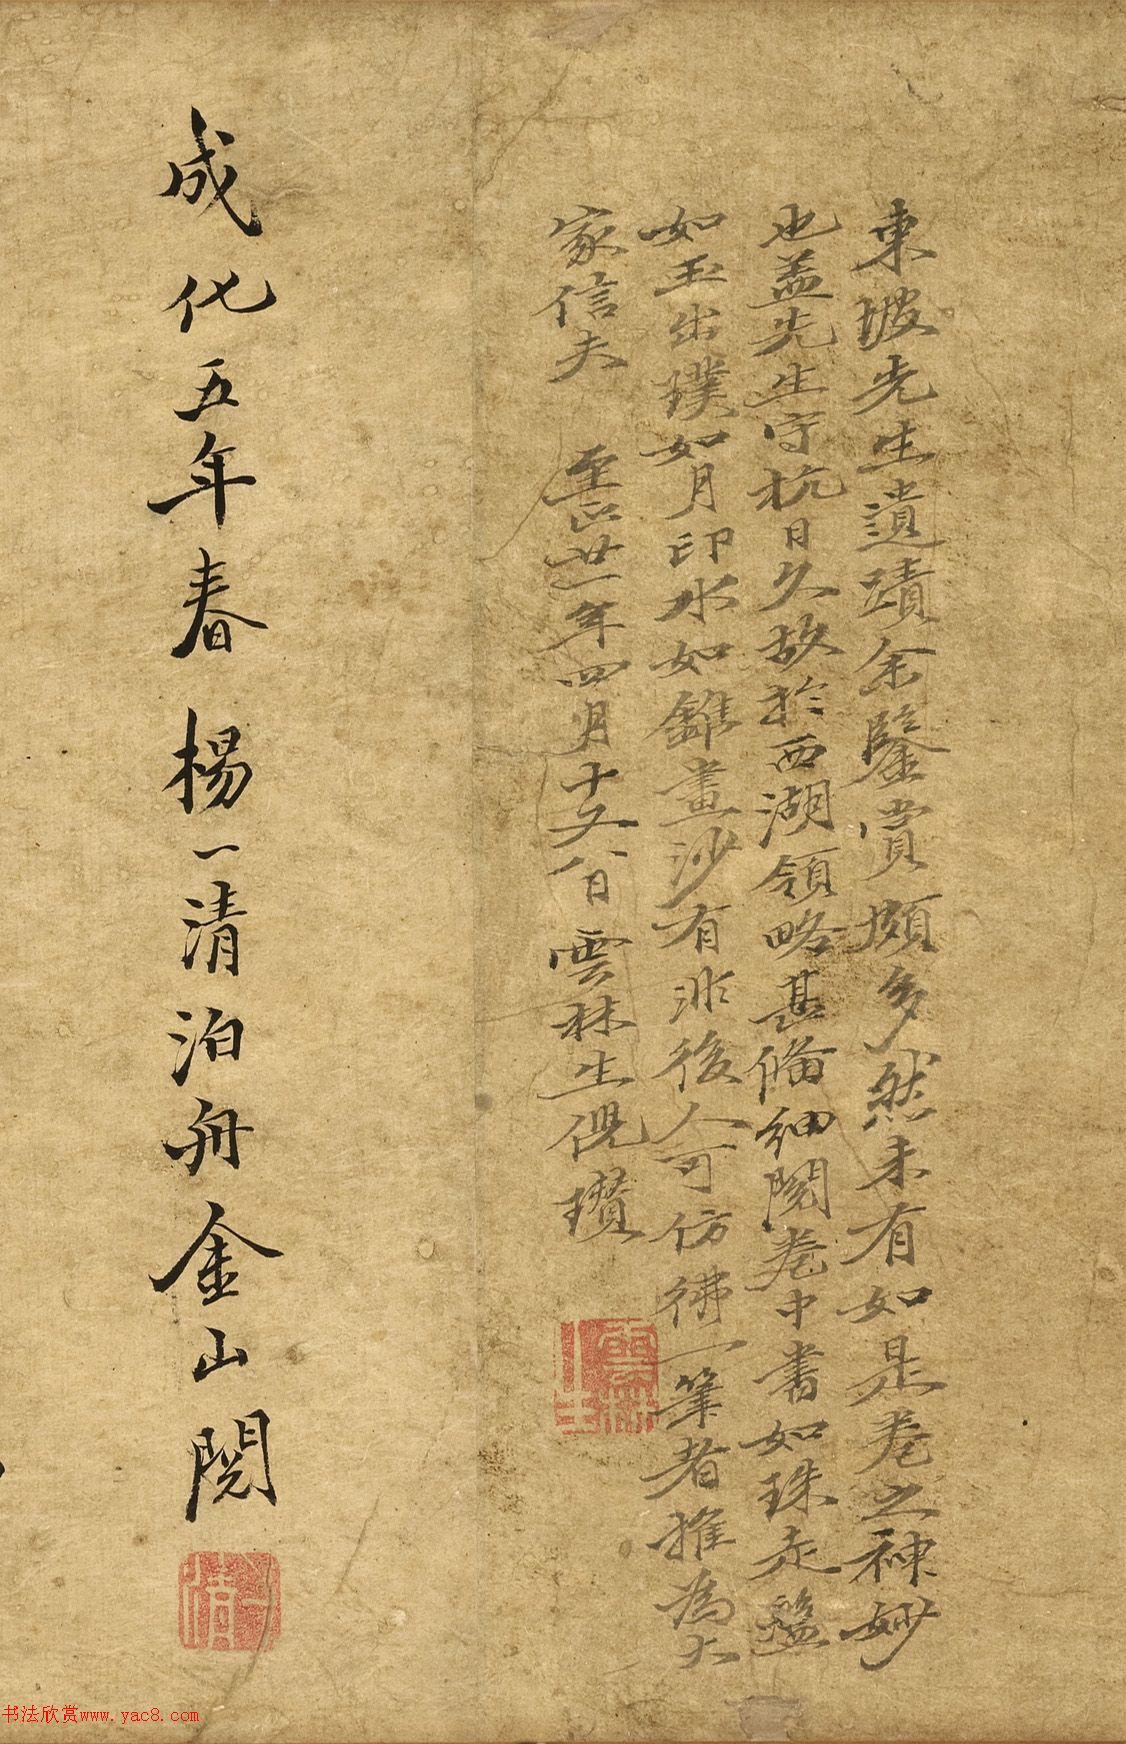 東坡先生遺蹟余鑒賞頗多然未有如是卷之神妙
也蓋先生守杭日久故於西湖領略甚備細閱卷中書如珠走盤
如玉出璞如月印水如錐畫沙有非後人可仿彿一筆者推為大
家信夫 至正廿一年四月十又八日雲林生倪瓚
雲林生
成化五年春楊一清泊舟金山閱
书法欣赏www.yac8.com